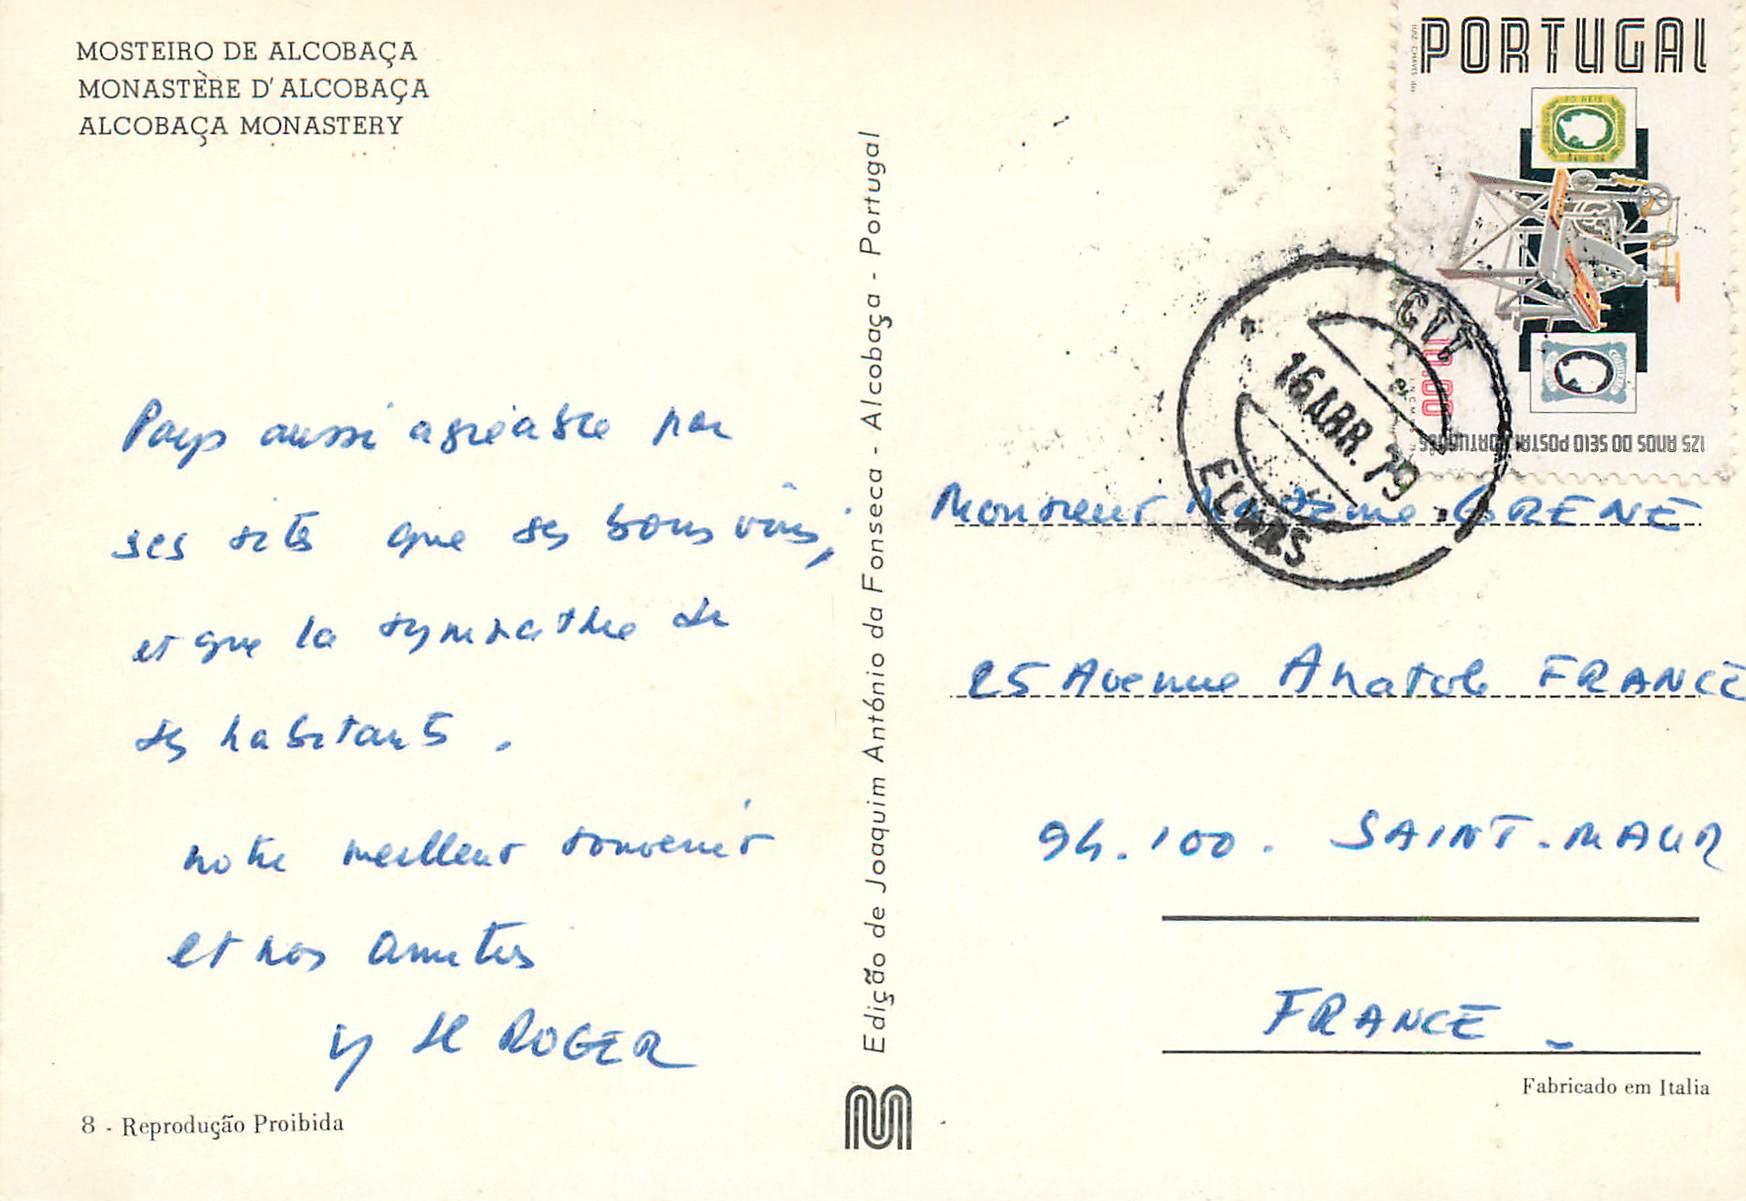 MOSTEIRO DE ALCOBAÇA
MONASTÈRE D'ALCOBAÇA
ALCOBAÇA MONASTERY
Pays aussi agréable par
ses sites que ses bons vins,
et que la sympathie de
ses habitants.
notre meilleur souvenir
et nos amitiés
ROGER
8 - Reprodução Proibida
Edição de Joaquim António da Fonseca - Alcobaça - Portugal
PORTUGAL
10.00
125 ANOS DO SELO POSTAL PORTUGUÊS
CTT
16 ABR. 79
ELVAS
Monsieur Madame GRENE
25 Avenue Anatole FRANCE
94.100. SAINT-MAUR
FRANCE
Fabricado em Italia